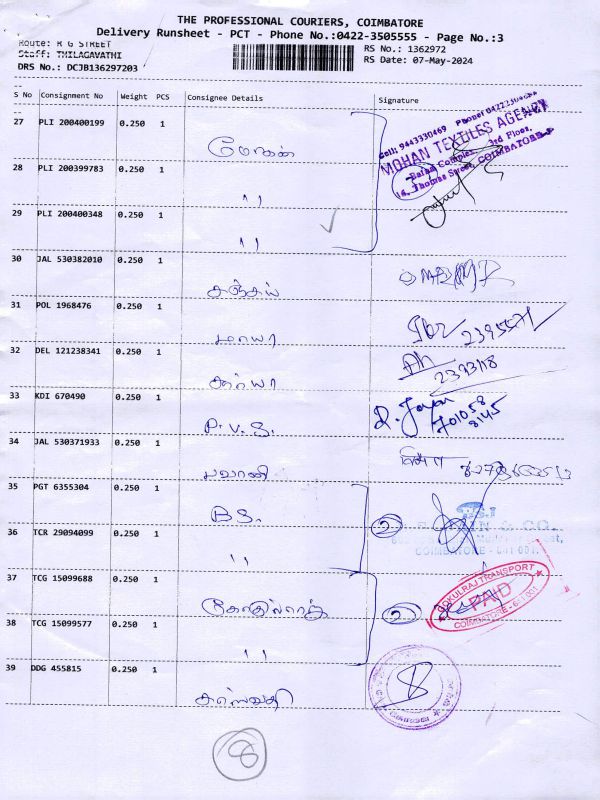 THE PROFESSIONAL COURIERS, COIMBATORE
Delivery Runsheet - PCT - Phone No.:0422-3505555 - Page No.:3
Route: R G STREET
Staff: THILAGAVATHI
DRS No.: DCJB136297203
RS No.: 1362972
RS Date: 07-May-2024
S No Consignment No Weight PCS Consignee Details Signature
27 PLI 200400199 0.250 1 மோகன்
Cell: 9443330469 Phone: 0422
MOHAN TEXTILES AGENCY
Complex, 3rd Floor,
Thomas Street, COIMBATORE
28 PLI 200399783 0.250 1 ,,
29 PLI 200400348 0.250 1 ,,
30 JAL 530382010 0.250 1 சஞ்சய்
31 POL 1968476 0.250 1 மாயா 2395571
32 DEL 121238341 0.250 1 சூர்யா 2393118
33 KDI 670490 0.250 1 P.V.S. 701058 8145
34 JAL 530371933 0.250 1 பவானி
35 PGT 6355304 0.250 1 B.S. 2
& CO.,
COIMBATORE - 641 001.
36 TCR 29094099 0.250 1 ,,
37 TCG 15099688 0.250 1 2
GOKULRAJ TRANSPORT
PAID
COIMBATORE - 641 001
38 TCG 15099577 0.250 1 ,,
39 DDG 455815 0.250 1 சரஸ்வதி
8